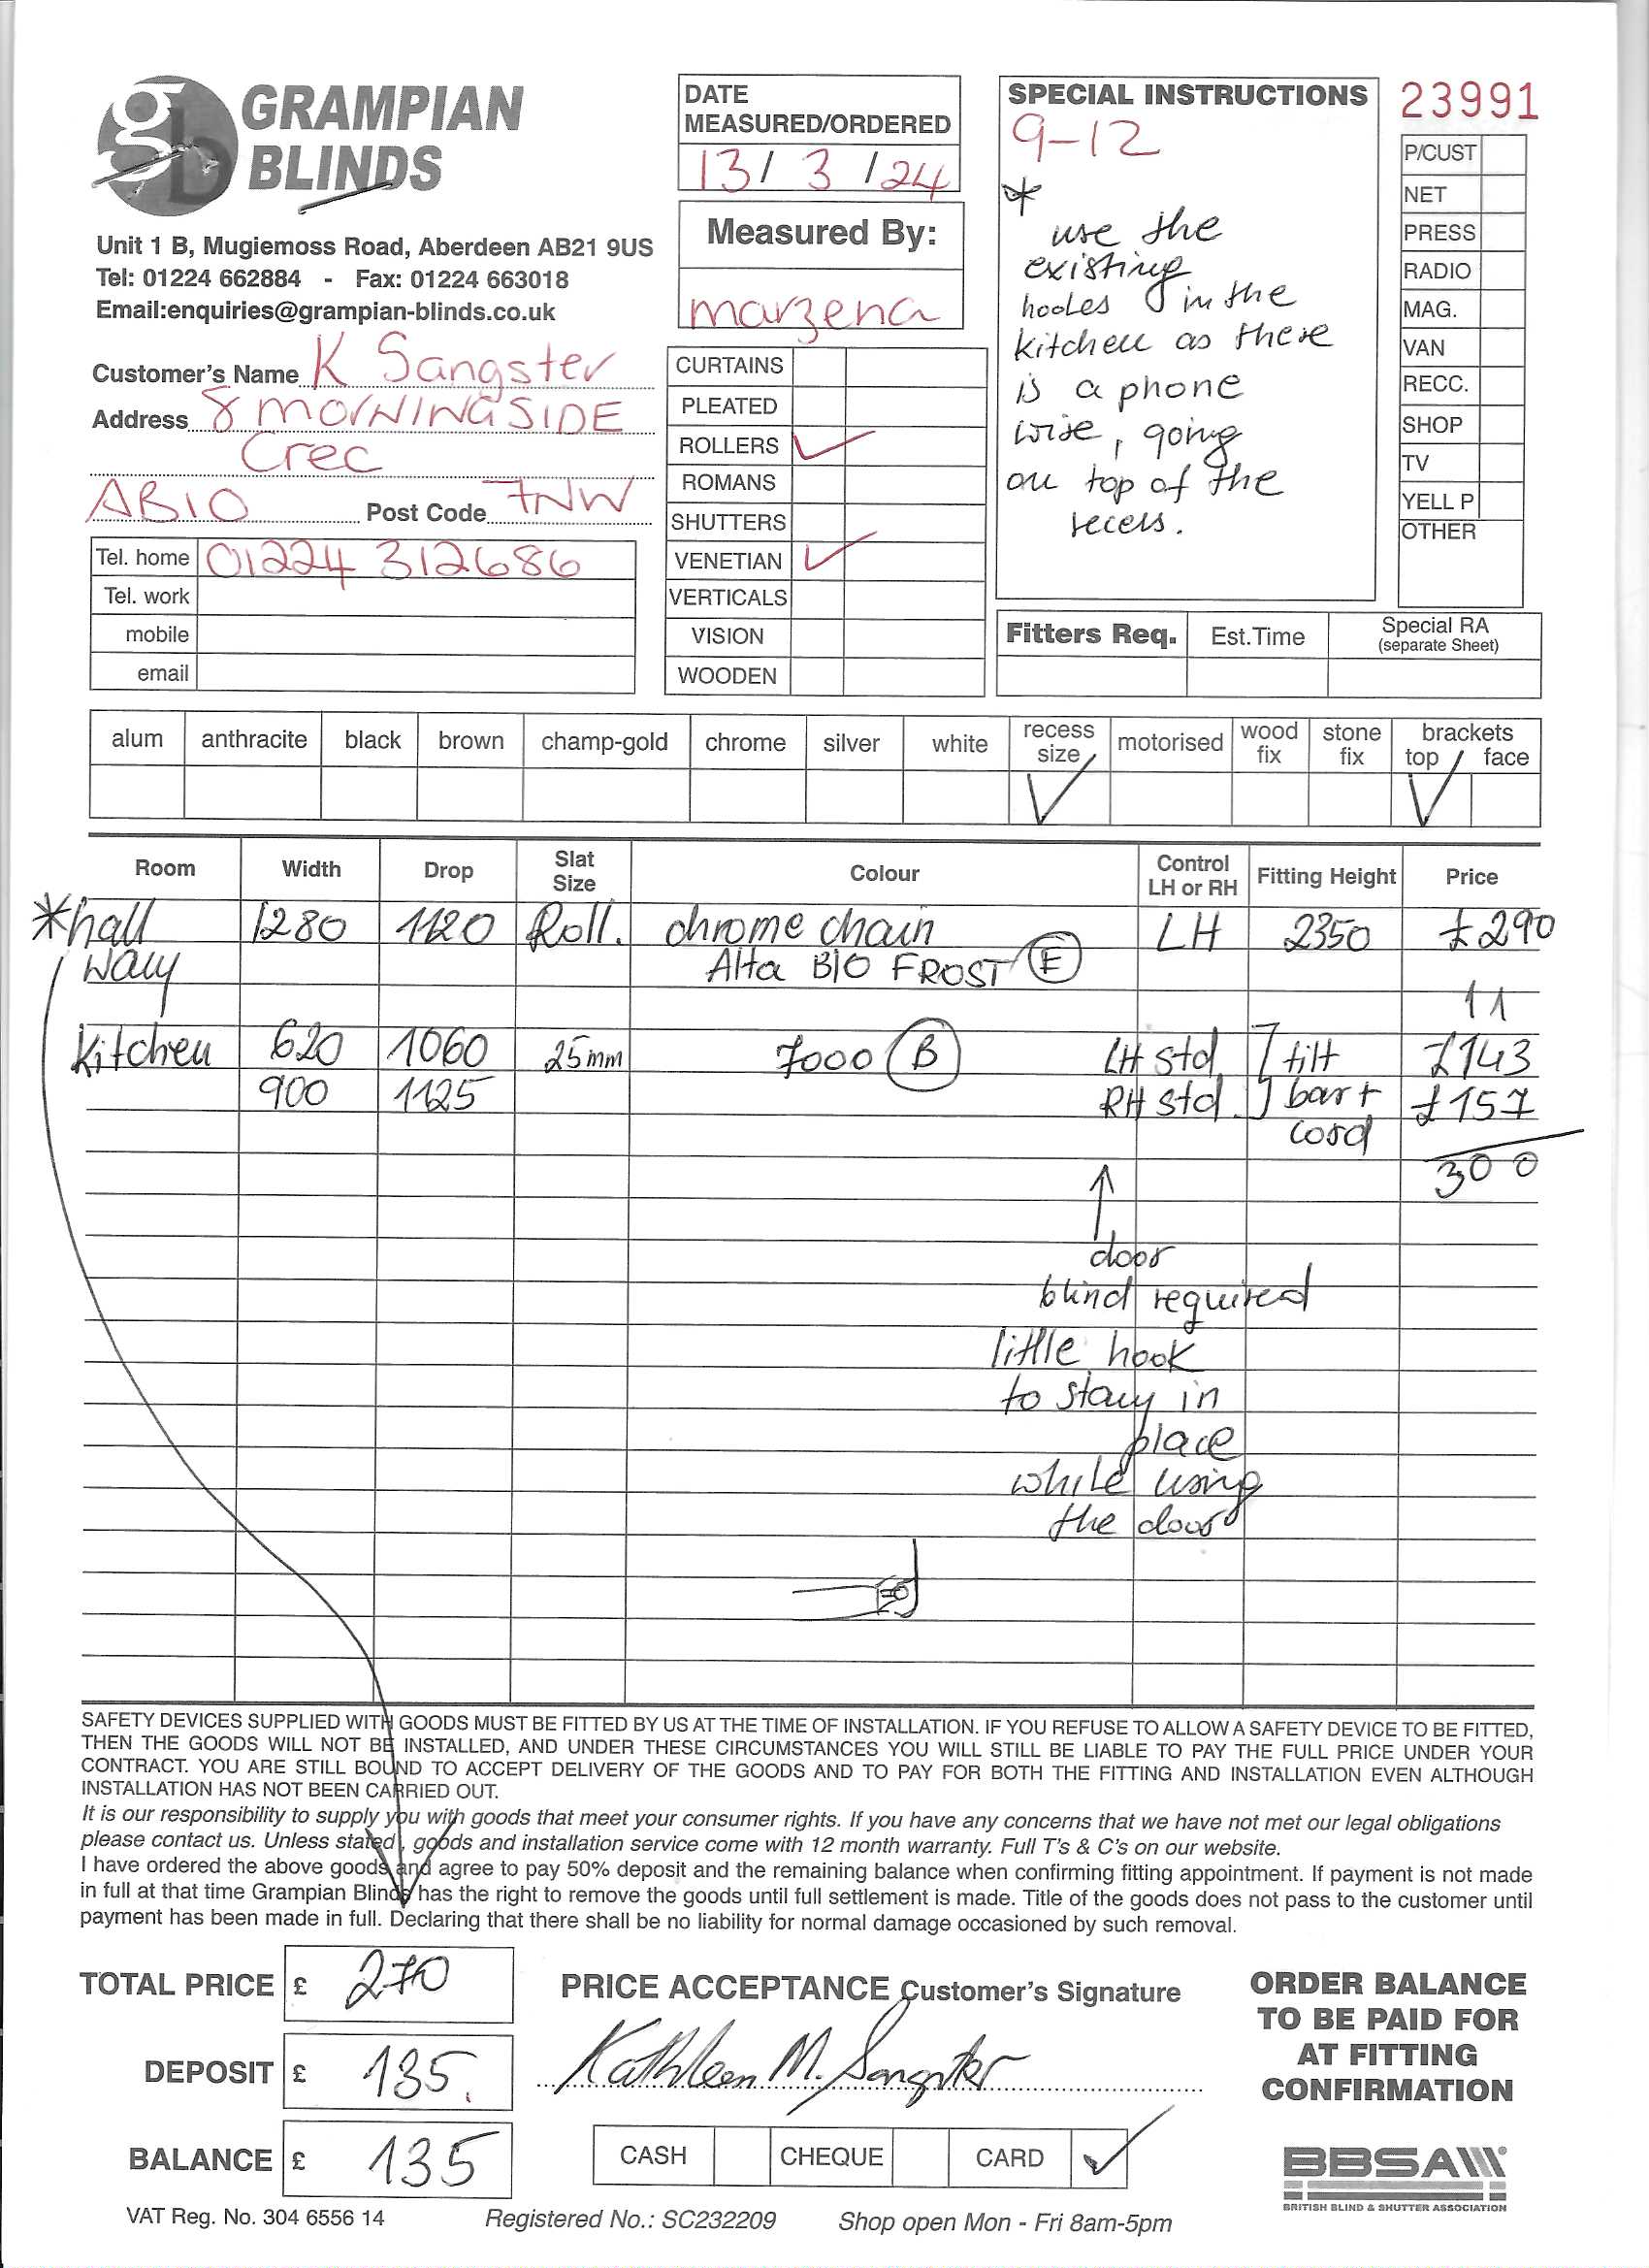 GRAMPIAN
BLINDS
Unit 1 B, Mugiemoss Road, Aberdeen AB21 9US
Tel: 01224 662884 - Fax: 01224 663018
Email:enquiries@grampian-blinds.co.uk
Customer's Name K Sangster
Address 8 MORNINGSIDE
Crec
AB10 Post Code 7NW
Tel. home 01224 312686
Tel. work
mobile
email
DATE
MEASURED/ORDERED
13/ 3 /24
Measured By:
marzena
CURTAINS
PLEATED
ROLLERS ✓
ROMANS
SHUTTERS
VENETIAN ✓
VERTICALS
VISION
WOODEN
SPECIAL INSTRUCTIONS
9-12
*
use the
existing
hooles in the
kitchen as there
is a phone
wire, going
on top of the
recess.
23991
P/CUST
NET
PRESS
RADIO
MAG.
VAN
RECC.
SHOP
TV
YELL P
OTHER
Fitters Req. Est.Time Special RA
(separate Sheet)
alum anthracite black brown champ-gold chrome silver white recess size ✓ motorised wood fix stone fix brackets top ✓ face
Room Width Drop Slat Size Colour Control LH or RH Fitting Height Price
*hall 1280 1120 Roll. chrome chain LH 2350 £290
way Alta B/O FROST E
11
Kitchen 620 1060 25mm 7000 B LH std tilt £143
900 1125 RH std bar + £157
cord
300
door
blind required
little hook
to stay in
place
while using
the door
SAFETY DEVICES SUPPLIED WITH GOODS MUST BE FITTED BY US AT THE TIME OF INSTALLATION. IF YOU REFUSE TO ALLOW A SAFETY DEVICE TO BE FITTED,
THEN THE GOODS WILL NOT BE INSTALLED, AND UNDER THESE CIRCUMSTANCES YOU WILL STILL BE LIABLE TO PAY THE FULL PRICE UNDER YOUR
CONTRACT. YOU ARE STILL BOUND TO ACCEPT DELIVERY OF THE GOODS AND TO PAY FOR BOTH THE FITTING AND INSTALLATION EVEN ALTHOUGH
INSTALLATION HAS NOT BEEN CARRIED OUT.
It is our responsibility to supply you with goods that meet your consumer rights. If you have any concerns that we have not met our legal obligations
please contact us. Unless stated, goods and installation service come with 12 month warranty. Full T's & C's on our website.
I have ordered the above goods and agree to pay 50% deposit and the remaining balance when confirming fitting appointment. If payment is not made
in full at that time Grampian Blinds has the right to remove the goods until full settlement is made. Title of the goods does not pass to the customer until
payment has been made in full. Declaring that there shall be no liability for normal damage occasioned by such removal.
TOTAL PRICE £ 270
DEPOSIT £ 135.
BALANCE £ 135
PRICE ACCEPTANCE Customer's Signature
Kathleen M. Sangster
CASH CHEQUE CARD ✓
ORDER BALANCE
TO BE PAID FOR
AT FITTING
CONFIRMATION
BBSA
BRITISH BLIND & SHUTTER ASSOCIATION
VAT Reg. No. 304 6556 14 Registered No.: SC232209 Shop open Mon - Fri 8am-5pm